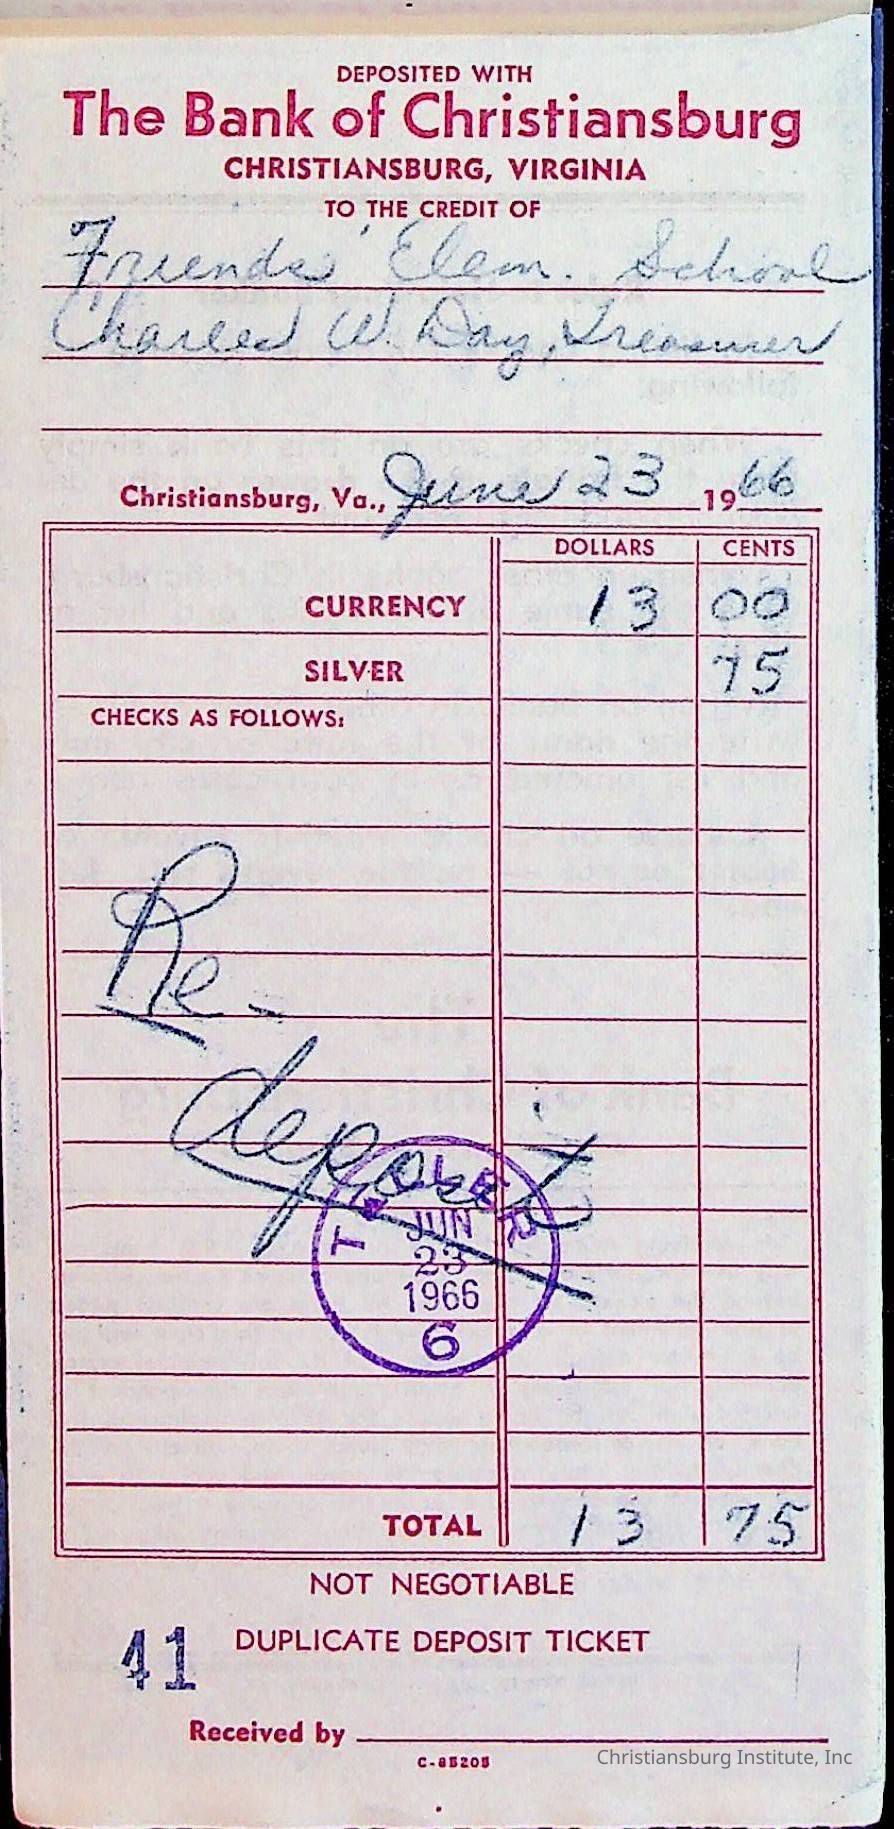 DEPOSITED WITH
The Bank of Christiansburg
CHRISTIANSBURG, VIRGINIA
TO THE CREDIT OF
Friends' Elem. School
Charles W. Day, Treasurer
Christiansburg, Va., June 23 1966
DOLLARS CENTS
CURRENCY 13 00
SILVER 75
CHECKS AS FOLLOWS:
Re-
deposit
TELLER
JUN
23
1966
6
TOTAL 13 75
NOT NEGOTIABLE
41 DUPLICATE DEPOSIT TICKET
Received by
C-85205
Christiansburg Institute, Inc